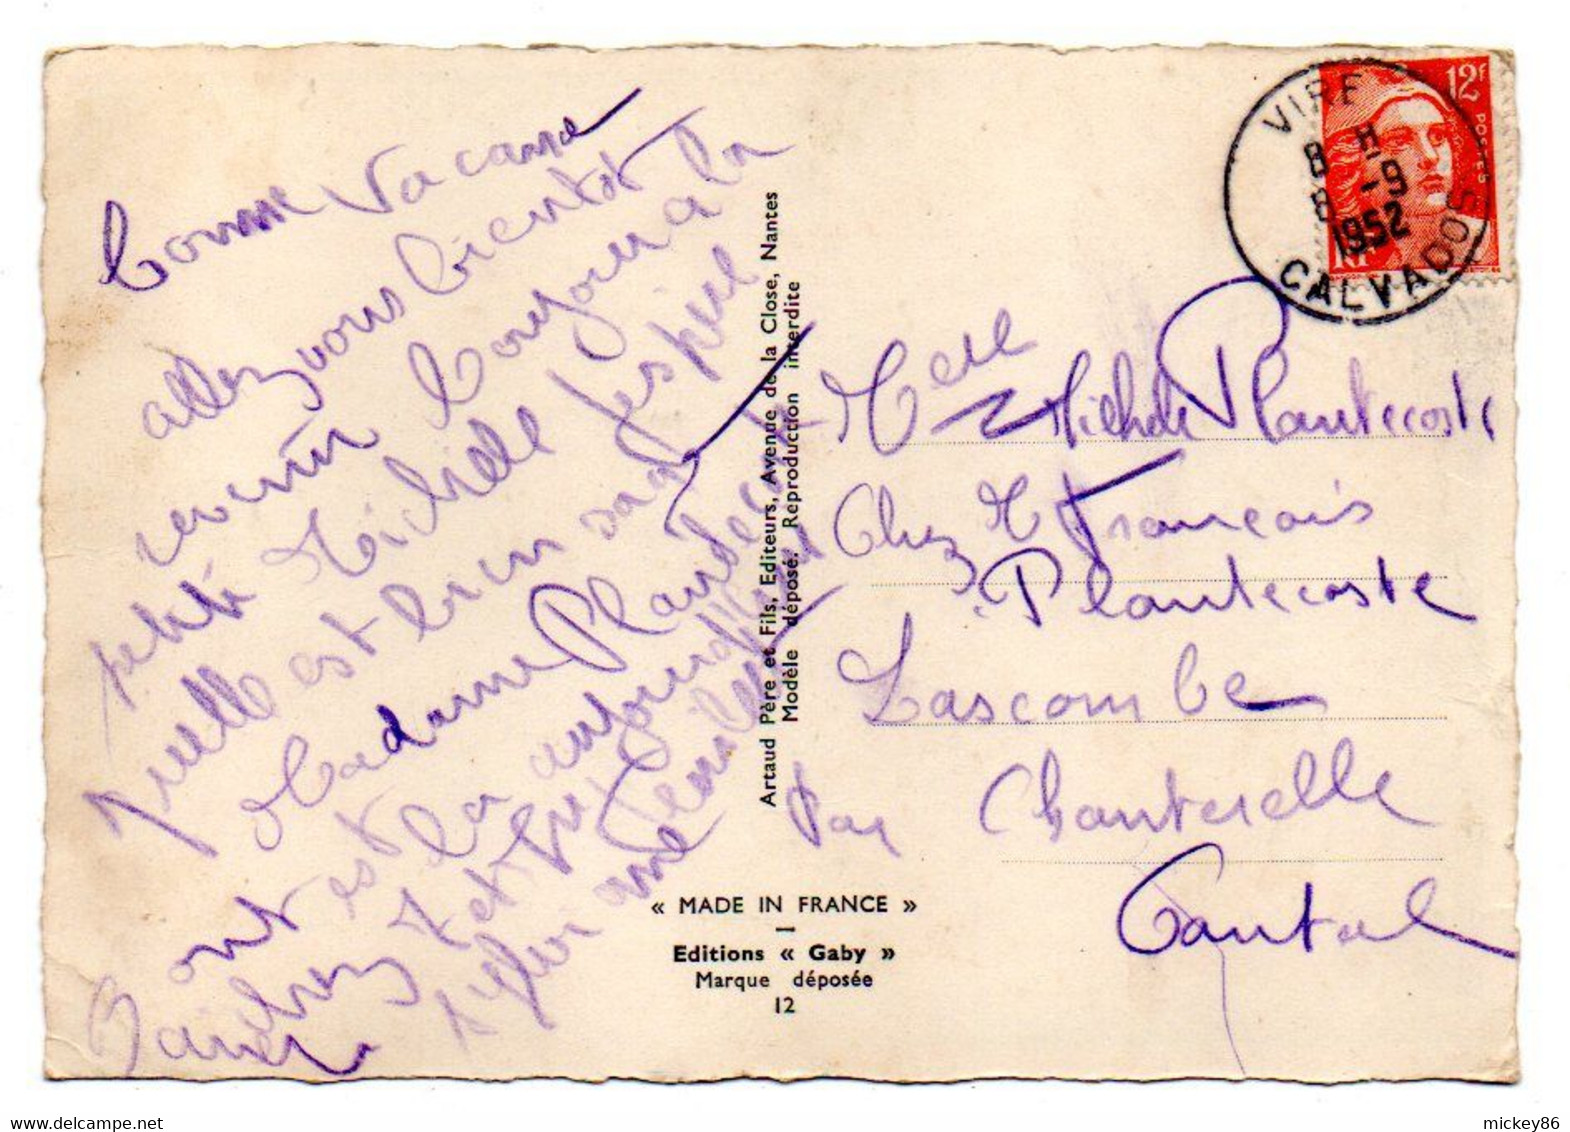 bonne vacance
allez vous bientot
revenir bonjour a la
petite Michelle j'espère
quelle est bien sage
Madame
ont est la aujourd'hui
et
famille
Artaud Père et Fils, Editeurs, Avenue de la Close, Nantes
Modèle déposé. Reproduction interdite
« MADE IN FRANCE »
I
Editions « Gaby »
Marque déposée
12
12F
POSTES
RF
VIRE
8 H
8 -9
1952
CALVADOS
Melle Michele Plantecoste
Chez M Francois
Plantecoste
Lascombe
Par Chanterelle
Cantal
mickey86